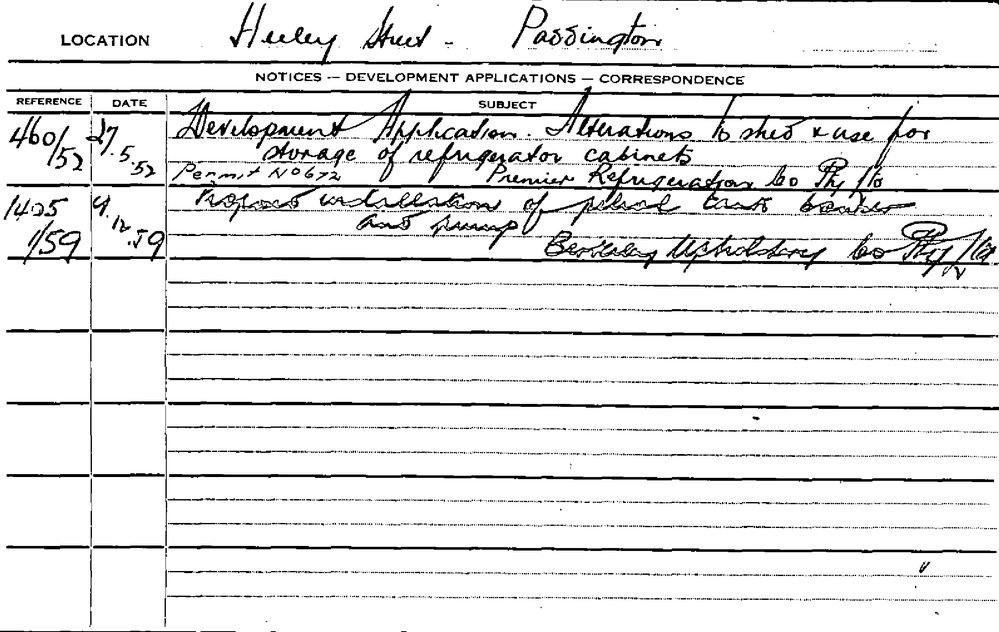 LOCATION Heeley Street - Paddington
NOTICES — DEVELOPMENT APPLICATIONS — CORRESPONDENCE
REFERENCE DATE SUBJECT
460/52 27.5.52 Development Application. Alterations to shed & use for
storage of refrigerator cabinets
Permit No 672 Premier Refrigeration Co Pty Ltd
1425/59 9.12.59 Proposed installation of petrol tank
and pump
Berkeley Upholstery Co Pty Ltd